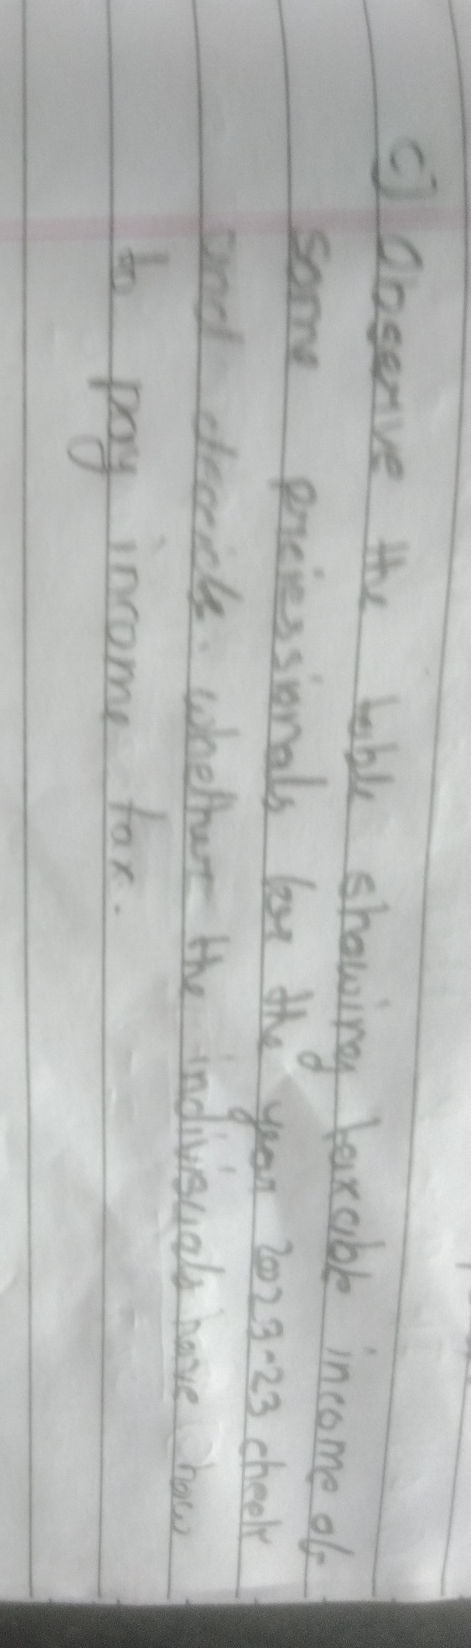 c) Observe the table showing taxable income of
some professionals for the year 2023-23 check
and decide whether the individuals have how
to pay income tax.